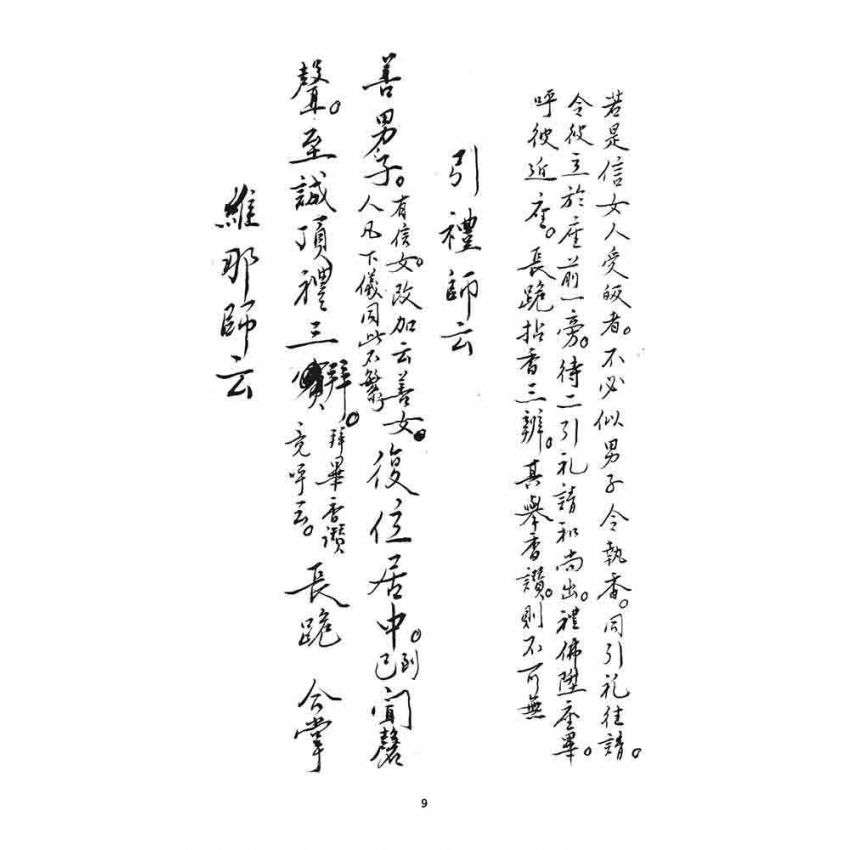 若是信女人受皈者。不必似男子令執香。同引礼往請。
令彼立於座前一旁。待二引礼請和尚出。禮佛陞座畢。
呼彼近座。長跪拈香三辦。其舉香讚。則不可無
引禮師云
善男子。有信女。改加云善女。人凡下儀同此不繁 復位居中。已到 聞磬
聲。至誠頂禮三寶 拜。拜畢香讚竟呼云。 長跪 合掌
維那師云
9